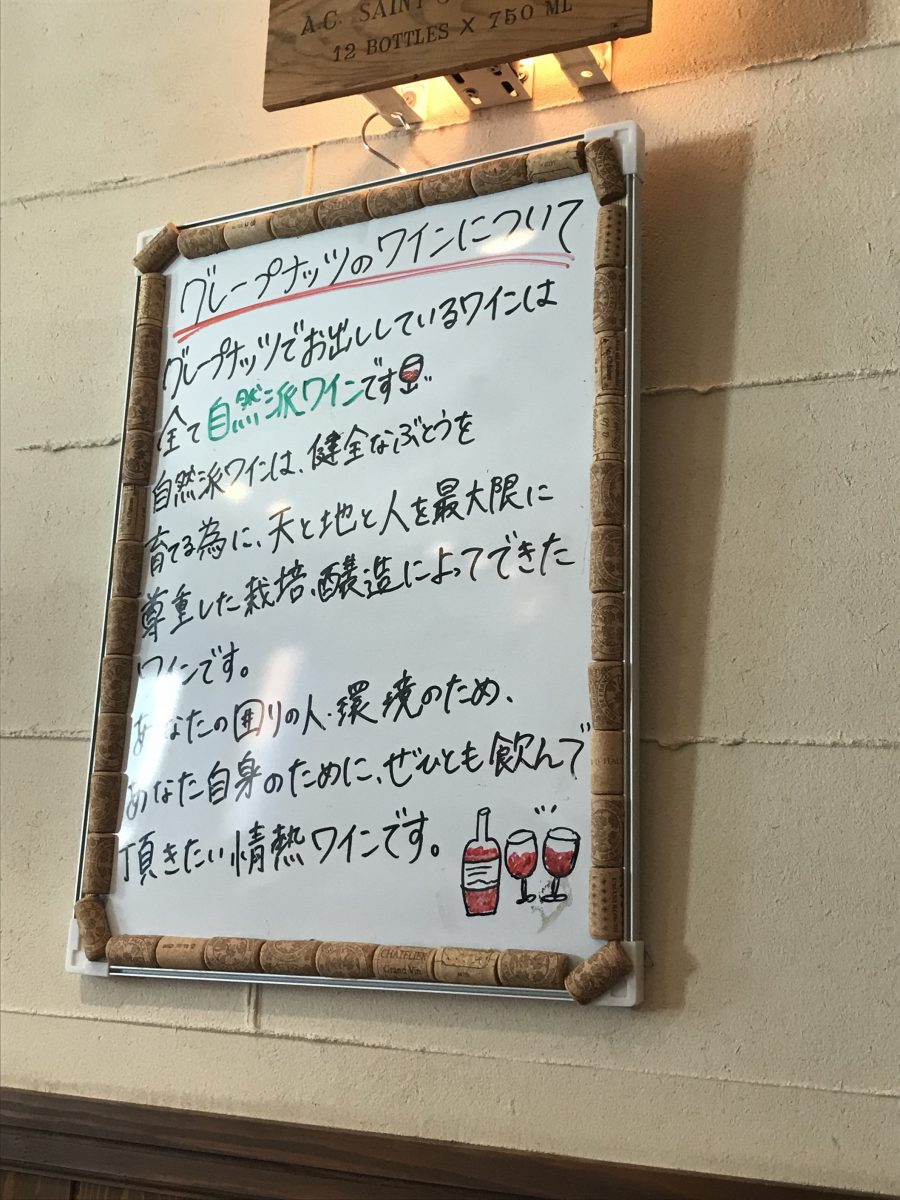 A.C. SAINT
12 BOTTLES X 750 ML
グレープナッツのワインについて
グレープナッツでお出ししているワインは
全て自然派ワインです
自然派ワインは、健全なぶとうを
育てる為に、天と地と人を最大限に
尊重した栽培、醸造によってできた
ワインです。
あなたの囲りの人・環境のため、
あなた自身のために、ぜひとも飲んで
頂きたい情熱ワインです。
CHATELIER
Grand Vin